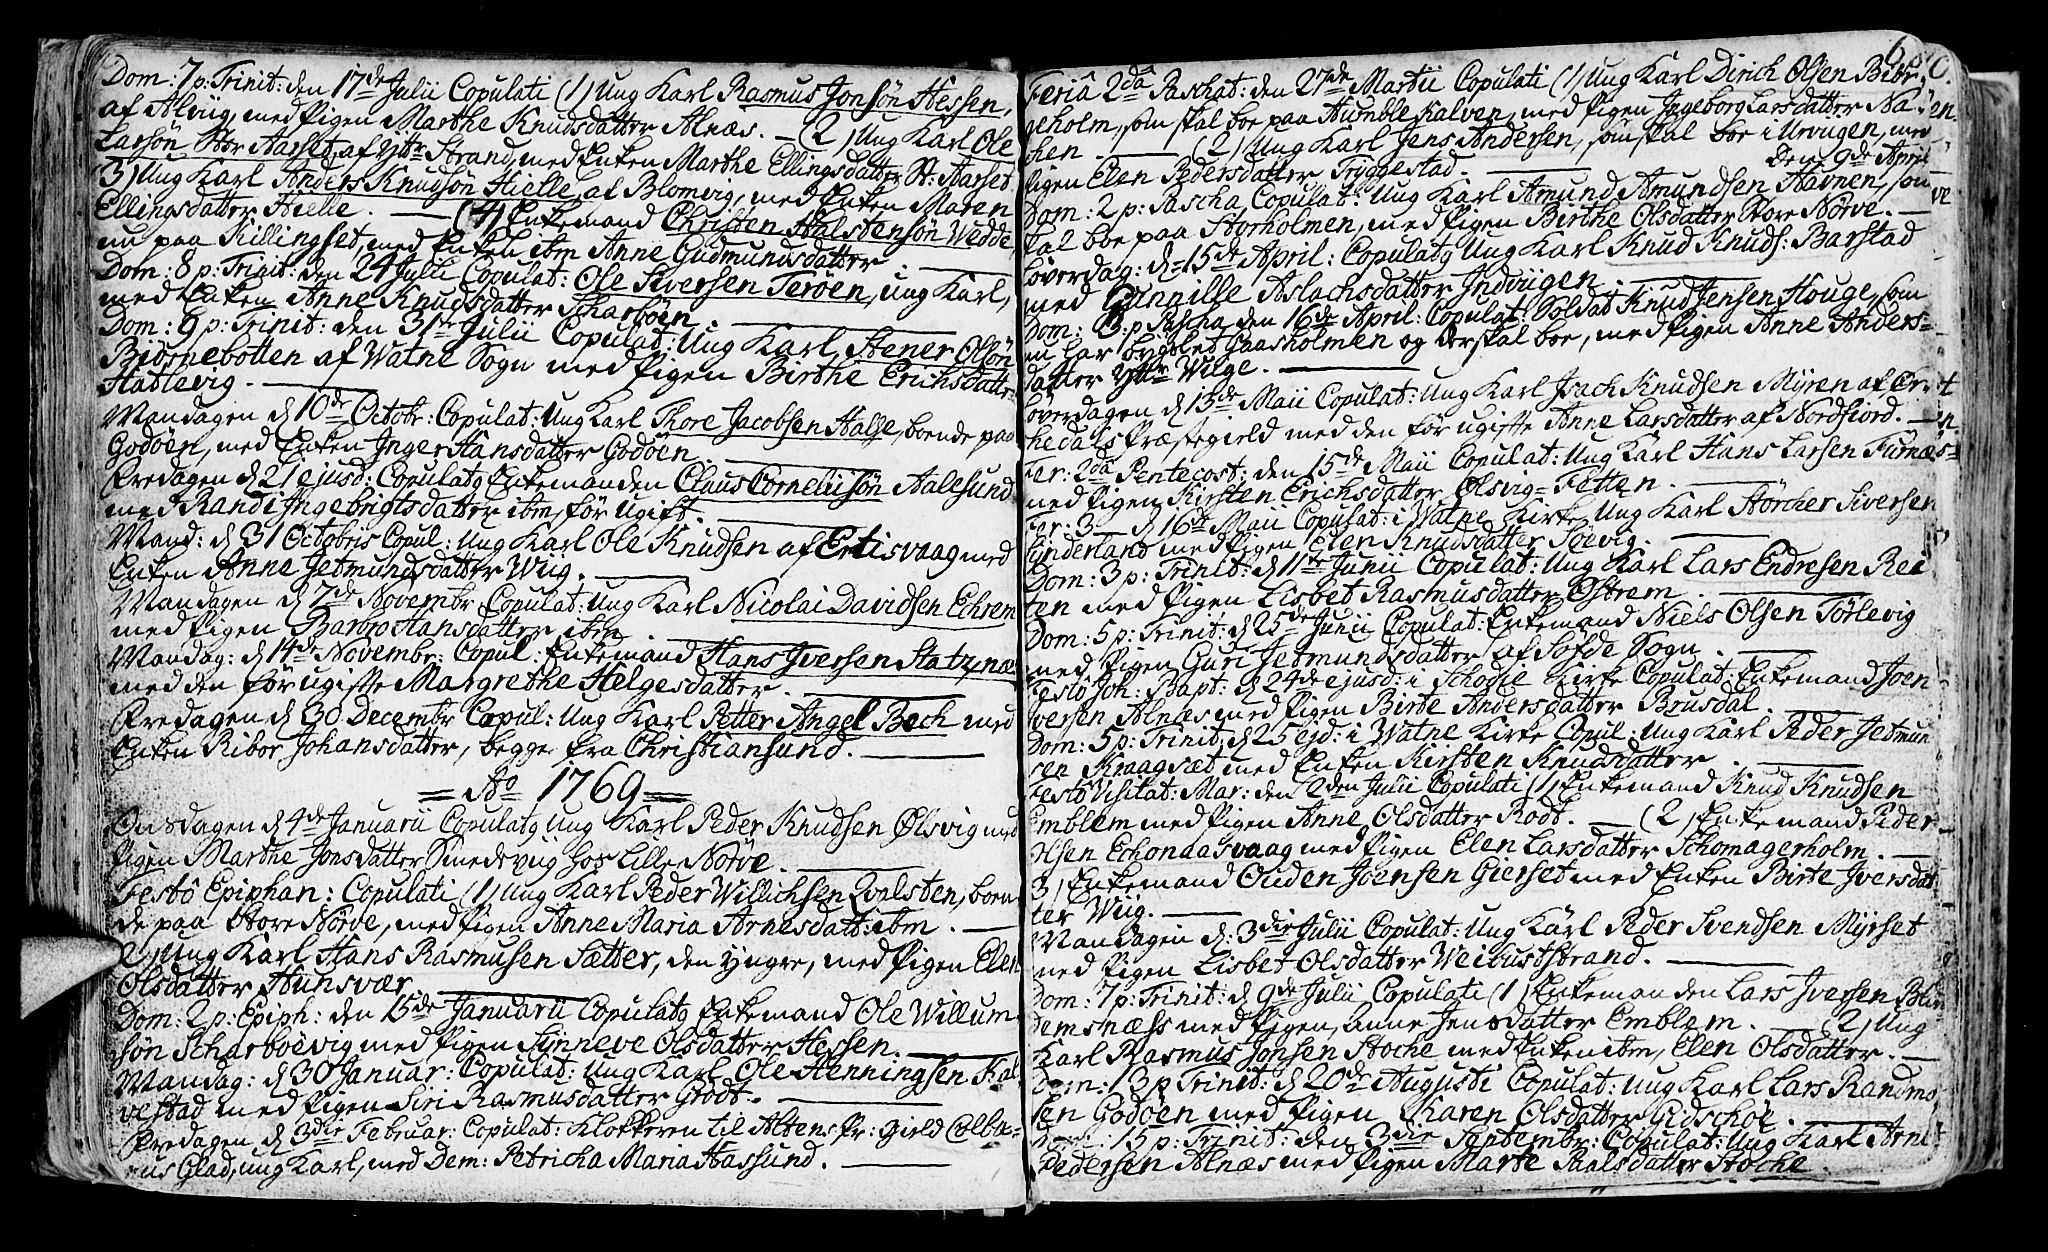 Dom: 7 p: Trinit: den 17de Julii Copulati (1) Ung Karl Rasmus Jonsøn Hessen,
af Alvig, med Pigen Marthe Knudsdatter Alnæs. — (2) Ung Karl Ole
Larsøn Stor Aarset, af Yttr Strand, med Enken Marthe Ellingsdatter St: Aarset
3) Ung Karl Anders Knudsøn Hielle af Blomvig, med Enken Maren
Ellingsdatter Hielle. — (4) Enkemand Christen Halstensøn Wedde,
nu paa Killingset, med Enken ibm Anne Gudmundsdatter.
Dom: 8 p: Trinit: den 24 Julii Copulat: Ole Siversen Terøen, ung Karl,
med Enken Anne Knudsdatter Scharbøen.
Dom: 9 p: Trinit: den 31te Julii Copulat: Ung Karl, Stener Olsøn
Biørnebotten af Watne Sogn med Pigen Birthe Erichsdatter
Stablevig.
Mandagen d 10de Octobr: Copulat: Ung Karl Thore Jacobsen Halse, boende paa
Godøen, med Enken Inger Hansdatter Godøen.
Fredagen d 21 ejusd: Copulatq Enkemanden Claus Corneliisøn Aalesund
med Randi Ingebrigtsdatter ibm, før ugift.
Mand: d 31 Octobris Copul: Ung Karl Ole Knudsen af Ertisvaag med
Enken Anne Jetmundsdatter Wiig.
Mandagen d 7de Novembr Copulat: Ung Karl Nicolai Davidsen Echrem
med Pigen Barbro Hansdatter ibm.
Mandag: d 14de Novembr: Copul: Enkemand Hans Iversen Slatznæ
med den før ugifte Margrethe Helgesdatter.
Fredagen d 30 Decembr Copul: Ung Karl Petter Angel Bech med
Enken Ribor Johansdatter, begge fra Christiansund.
= Ao 1769 =
Onsdagen d 4de Januarii Copulatq ung Karl Peder Knudsen Ølsvig med
Pigen Marthe Jonsdatter Smedeviig hos Lille Nørve.
Festô Epiphan: Copulati (1) Ung Karl Peder Willichsen Qvalsten, boen
de paa Store Nørve, med Pigen Anne Maria Arnesdatt: ibm.
2) Ung Karl Hans Rasmusen Sætter, den yngre, med Pigen Elen
Olsdatter Hunsvær.
Dom: 2 p: Epiph: den 15de Januarii Copulatq Enkemand Ole Willum
søn Scharboevig med Pigen Sinneve Olsdatter Hessen.
Mandag: d 30 Januar: Copulat: ung Karl Ole Henningsen Fal
vestad med Pigen Siri Rasmusdatter Grodt.
Fredagen d 3die Februar: Copulat: Klokkeren til Altens Pr: gield Colba
nus Glad, ung Karl, med Dem: Petricha Maria Aasund.
Feriâ 2dâ Paschat: den 27de Martii Copulati (1) Ung Karl Dirich Olsen Bibr
geholm, som skal boe paa Humblekalven, med Pigen Ingeborg Larsdatter Na
chen. — (2) Ung Karl Jens Andersen, som skal boe i Urvugen, med
Pigen Elen Pedersdatter Tryggestad. — Den 9de April
Dom: 2 p: Pascha Copulat: Ung Karl Amund Amundsen Havnen, som
skal boe paa Storholmen, med Pigen Birthe Olsdatter Store Nørve.
Løverdag: d 15de April: Copulatq Ung Karl Knud Knuds: Barstad
med Gunnille Aslachsdatter Indvigen.
Dom: 3 p Pascha den 16de April: Copulat: Soldat Knud Jensen Houge, som
har bygslet Gaasholmen og der skal boe, med Pigen Anne Anders-
datter Yttr Wilge.
Løverdagen d 13de Maii Copulat: Ung Karl Isach Knudsen Myren af Ør-
hedals Præstegield med den før ugifte Anne Larsdatter af Nordfiord.
Fer: 2dâ Pentecost: den 15de Maii Copulat: Ung Karl Hans Larsen Furnæs
med Pigen Kirsten Erichsdatter Ølsvig-Fetten.
Fer: 3 d 16de Maii Copulat: i Watne Kirke Ung Karl Størcher Siversen
Synderland med Pigen Elen Knudsdatter Søevig.
Dom: 3 p: Trinit: d 11te Junii Copulat: Ung Karl Lars Endresen Rei
ten med Pigen Lisbet Rasmusdatter Østrem.
Dom: 5 p: Trinit: d 25de Junii Copulat: Enkemand Niels Olsen Torlevig
med Pigen Guri Jetmundsdatter af Søfde Sogn.
Festô Joh: Bapt: d 24de ejusd: i Schodie Kirke Copulat: Enkemand Joen
Iversen Alnæs med Pigen Birte Andersdatter Brusdal.
Dom: 5 p: Trinit: d 25 ejd: i Watne Kirke Copul: Ung Karl Peder Jetmun
sen Kraagsæt med Enken Kirsten Knudsdatter.
Festô Visitat: Mar: den 2den Julii Copulati (1) Enkemand Knud Knudsen
Emblem med Pigen Anne Olsdatter Rodt. — (2) Enkemand Peder
Olsen Echondasvaag med Pigen Elen Larsdatter Schomagerholm.
3) Enkemand Ouden Joensen Gierset med Enken Birte Iversdat
ter Wiig.
Mandagen d: 3die Julii Copulat: Ung Karl Peder Svendsen Myrset
med Pigen Lisbet Olsdatter Weibustsstrand.
Dom: 7 p: Trinit: d 9de Julii Copulati (1) Enkemanden Lars Iversen Blin
demsnæss med Pigen Anne Jensdatter Emblem. — 2) Ung
Karl Rasmus Jonsen Stoche med Enken ibm, Elen Olsdatter.
Dom: 13 p Trinit: d 20de Augusti Copulat: Ung Karl Lars Randmo
sen Godøen med Pigen Karen Olsdatter Gidschøe.
Dom: 15 p: Trinit: den 3die Septembr: Copulat: Ung Karl Arne
Pedersen Alnæs med Pigen Marte Palsdatter Stoche.